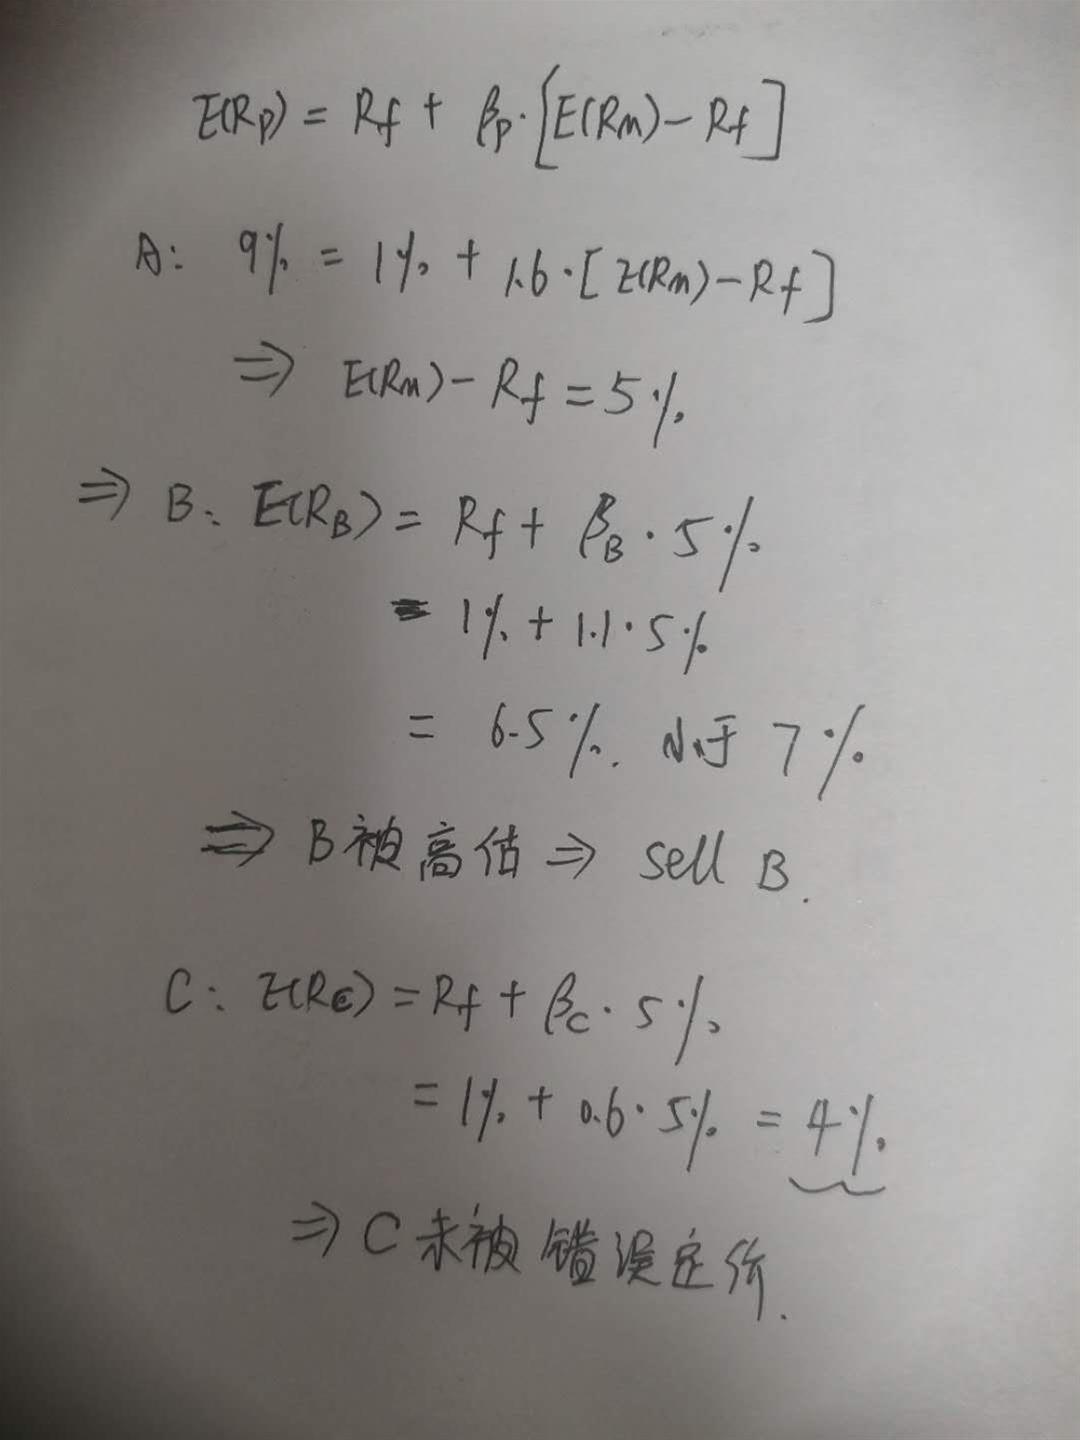 E(Rp) = Rf + βp·[E(Rm) - Rf]
A: 9% = 1% + 1.6·[E(Rm) - Rf]
⇒ E(Rm) - Rf = 5%
⇒ B: E(RB) = Rf + βB · 5%
= 1% + 1.1 · 5%
= 6.5%. 小于 7%
⇒ B被高估 ⇒ sell B.
C: E(Rc) = Rf + βc · 5%
= 1% + 0.6 · 5% = 4%
⇒ C未被错误定价.